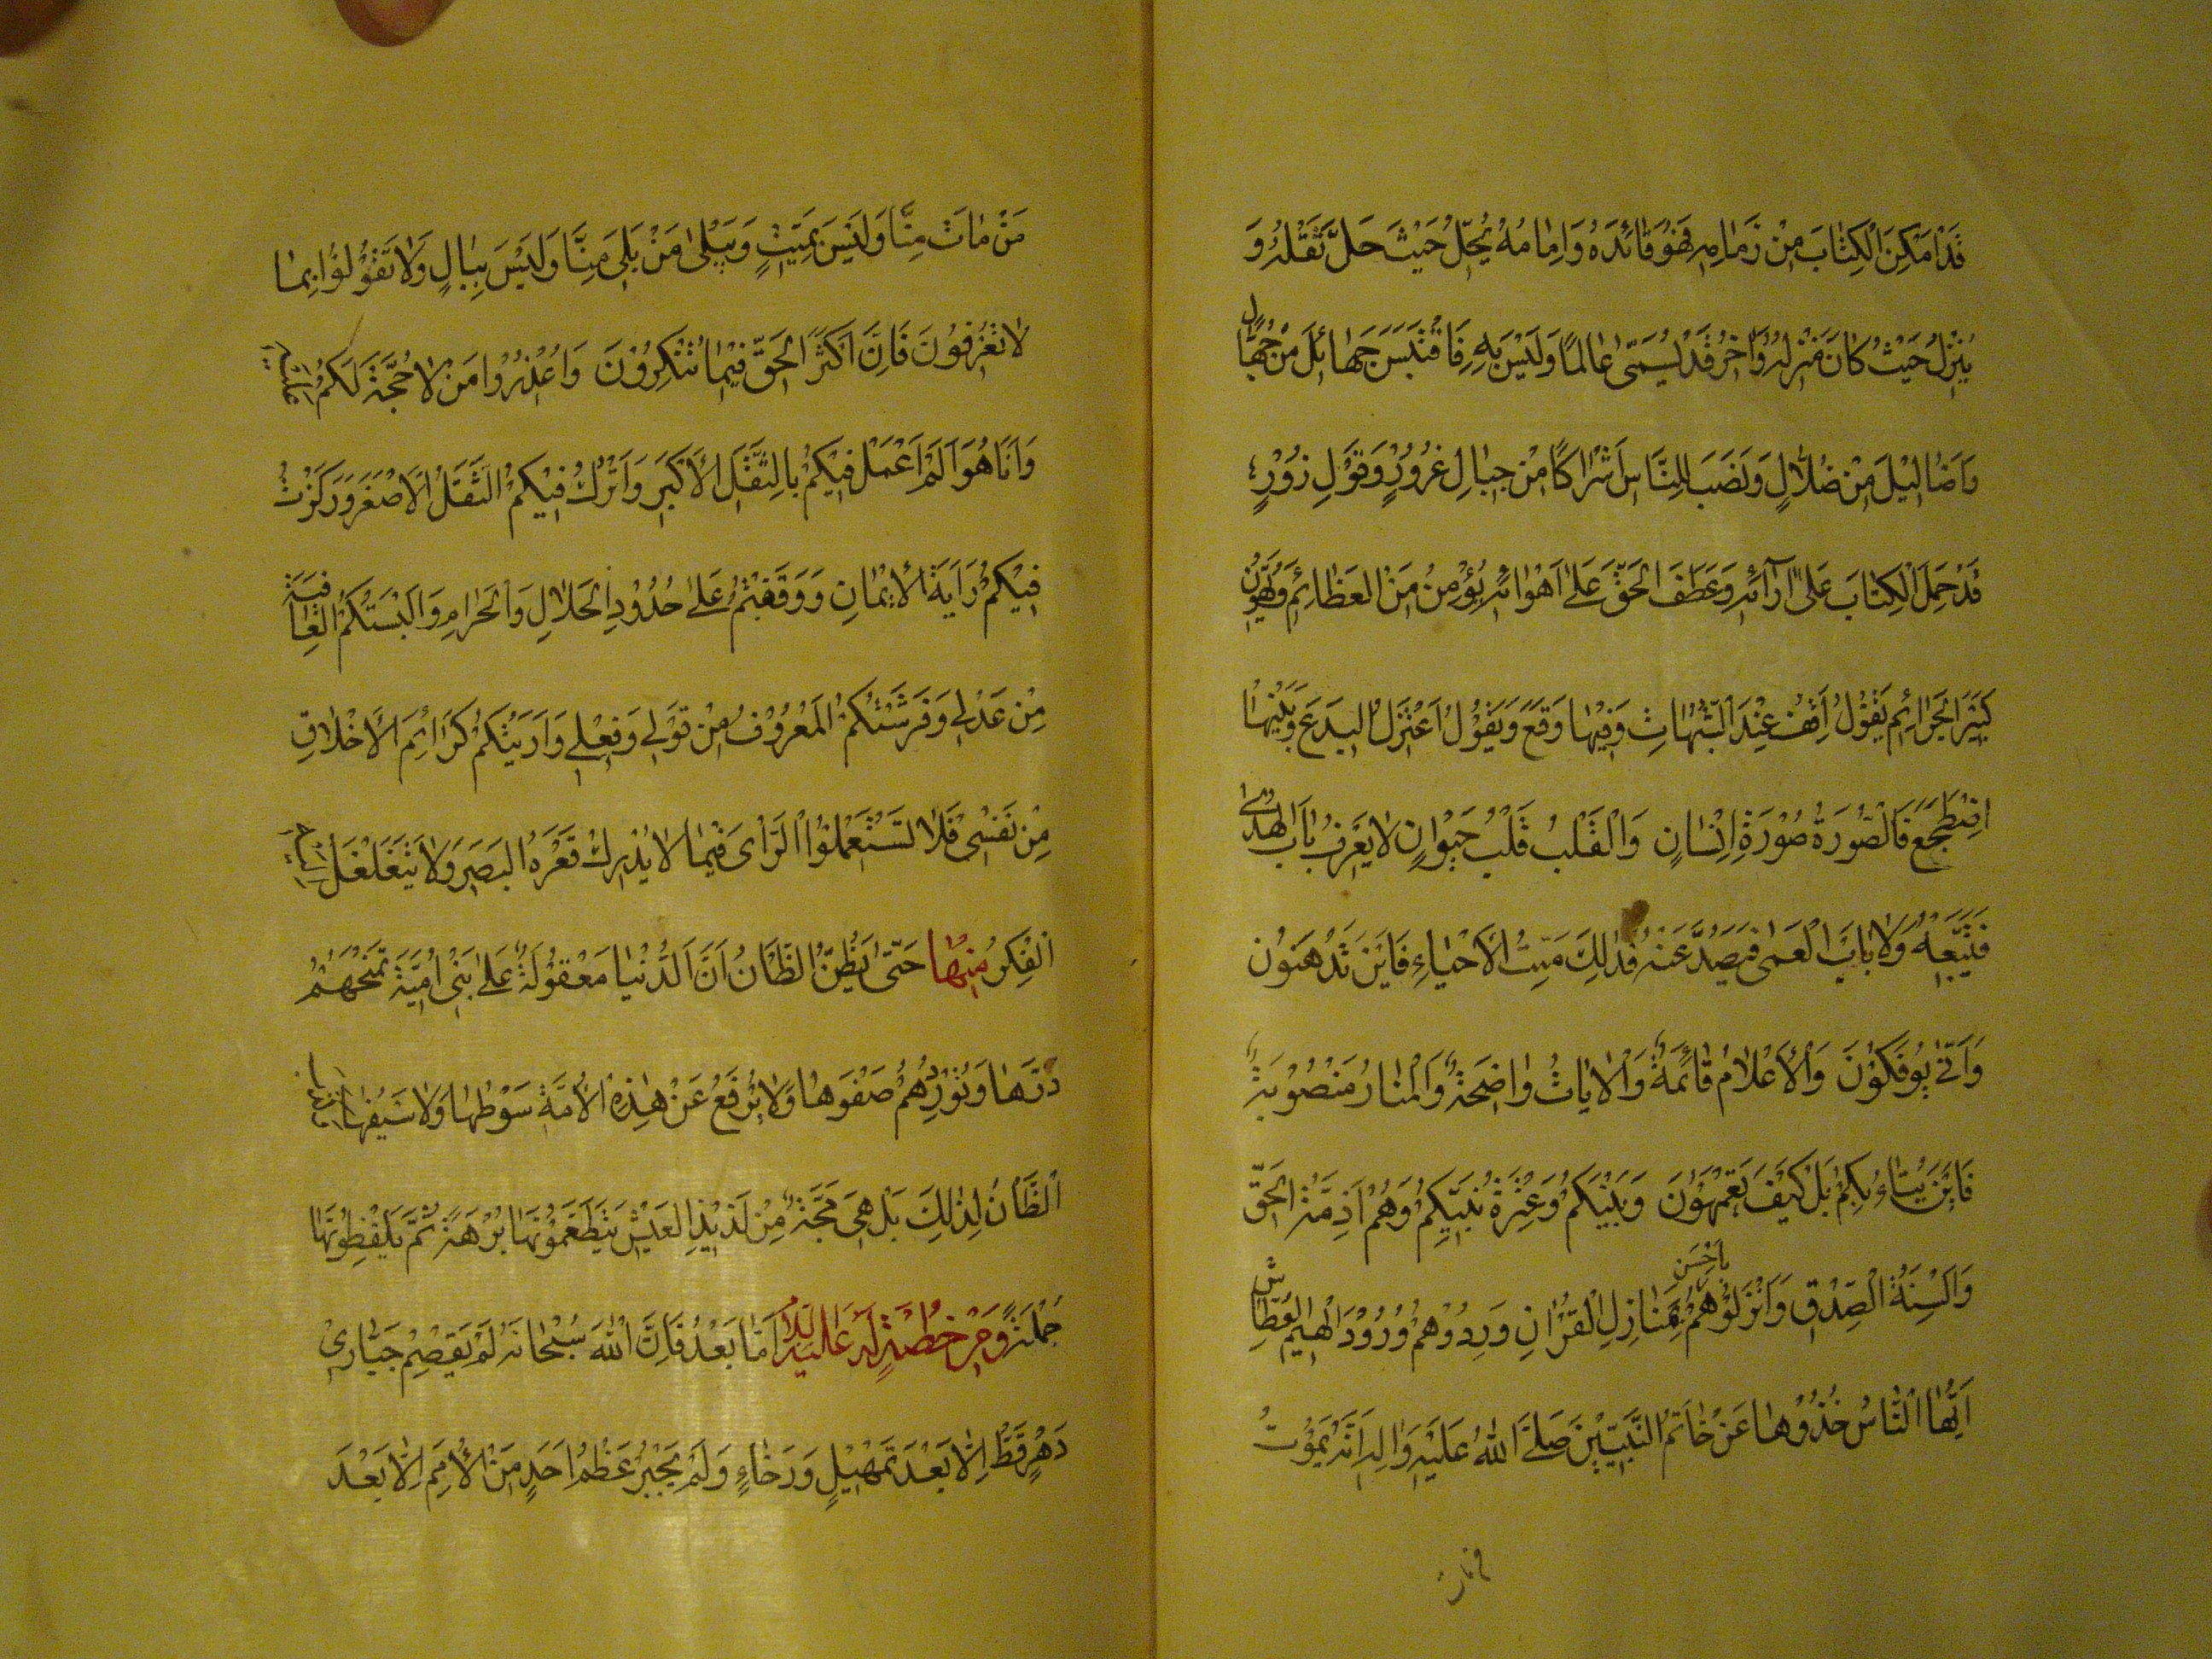 قَدْ اَمْكَنَ الْكِتَابَ مِنْ زَمَامِهِ فَهُوَ قَائِدُهُ وَاِمَامُهُ يَحُلُّ حَيْثُ حَلَّ ثَقَلُهُ وَ
يَنْزِلُ حَيْثُ كَانَ مَنْزِلُهُ وَاٰخَرُ قَدْ يُسَمّٰى عَالِمًا وَلَيْسَ بِهِ فَاقْتَبَسَ جَهَائِلَ مِنْ جُهَّالٍ
وَاَضَالِيْلَ مِنْ ضُلَّالٍ وَنَصَبَ لِلنَّاسِ اَشْرَاكًا مِنْ حِبَالِ غُرُوْرٍ وَقَوْلِ زُوْرٍ
قَدْ حَمَلَ الْكِتَابَ عَلٰى اٰرَائِهِ وَعَطَفَ الْحَقَّ عَلٰى اَهْوَائِهِ يُؤْمِنُ مِنَ الْعَظَائِمِ وَيُهَوِّنُ
كَبِيْرَ الْجَرَائِمِ يَقُوْلُ اَقِفُ عِنْدَ الشُّبُهَاتِ وَفِيْهَا وَقَعَ وَيَقُوْلُ اَعْتَزِلُ الْبِدَعَ وَبَيْنَهَا
اضْطَجَعَ فَالصُّوْرَةُ صُوْرَةُ اِنْسَانٍ وَالْقَلْبُ قَلْبُ حَيْوَانٍ لَا يَعْرِفُ بَابَ الْهُدٰى
فَيَتَّبِعَهُ وَلَا بَابَ الْعَمٰى فَيَصُدَّ عَنْهُ فَذٰلِكَ مَيِّتُ الْاَحْيَاءِ فَاَيْنَ تَذْهَبُوْنَ
وَاَنّٰى تُوفَكُوْنَ وَالْاَعْلَامُ قَائِمَةٌ وَالْاٰيَاتُ وَاضِحَةٌ وَالْمَنَارُ مَنْصُوْبَةٌ
فَاَيْنَ يُتَاهُ بِكُمْ بَلْ كَيْفَ تَعْمَهُوْنَ وَبَيْنَكُمْ وَعِتْرَةُ نَبِيِّكُمْ وَهُمْ اَزِمَّةُ الْحَقِّ
وَاَلْسِنَةُ الصِّدْقِ وَاَنْزِلُوْهُمْ بِاَحْسَنِ مَنَازِلِ الْقُرْاٰنِ وَرِدُوْهُمْ وُرُوْدَ الْهِيْمِ الْعِطَاشِ
اَيُّهَا النَّاسُ خُذُوْهَا عَنْ خَاتَمِ النَّبِيِّيْنَ صَلَّى اللّٰهُ عَلَيْهِ وَاٰلِهِ اَنَّهُ يَمُوْتُ
مَنْ مَاتَ مِنَّا وَلَيْسَ بِمَيِّتٍ وَيَبْلٰى مَنْ بَلِيَ مِنَّا وَلَيْسَ بِبَالٍ وَلَا تَقُوْلُوْا بِمَا
لَا تَعْرِفُوْنَ فَاِنَّ اَكْثَرَ الْحَقِّ فِيْمَا تُنْكِرُوْنَ وَاعْذِرُوْا مَنْ لَا حُجَّةَ لَكُمْ عَلَيْهِ
وَاَنَا هُوَ اَلَمْ اَعْمَلْ فِيْكُمْ بِالثِّقَلِ الْاَكْبَرِ وَاَتْرُكْ فِيْكُمُ الثَّقَلَ الْاَصْغَرَ وَرَكَزْتُ
فِيْكُمْ رَايَةَ الْاِيْمَانِ وَوَقَفْتُكُمْ عَلٰى حُدُوْدِ الْحَلَالِ وَالْحَرَامِ وَاَلْبَسْتُكُمُ الْعَافِيَةَ
مِنْ عَدْلِيْ وَفَرَشْتُكُمُ الْمَعْرُوْفَ مِنْ قَوْلِيْ وَفِعْلِيْ وَاَرَيْتُكُمْ كَرَائِمَ الْاَخْلَاقِ
مِنْ نَفْسِيْ فَلَا تَسْتَعْمِلُوا الرَّاْىَ فِيْمَا لَا يُدْرِكُ قَعْرَهُ الْبَصَرُ وَلَا يَتَغَلْغَلُ
الْفِكَرُ مِنْهَا حَتّٰى يَظُنَّ الظَّانُّ اَنَّ الدُّنْيَا مَعْقُوْلَةٌ عَلٰى بَنِيْ اُمَيَّةَ تَمْنَحُهُمْ
دَرَّهَا وَتُوْرِدُهُمْ صَفْوَهَا وَلَا يُرْفَعُ عَنْ هٰذِهِ الْاُمَّةِ سَوْطُهَا وَلَا سَيْفُهَا
الظَّانُّ لِذٰلِكَ بَلْ هِيَ مَجَّةٌ مِنْ لَذِيْذِ الْعَيْشِ يَتَطَعَّمُوْنَهَا بُرْهَةً ثُمَّ يَلْفِظُوْنَهَا
جُمْلَةً وَمِنْ خُطْبَةٍ لَهُ عَلَيْهِ السَّلَامُ اَمَّا بَعْدُ فَاِنَّ اللّٰهَ سُبْحَانَهُ لَمْ يَقْصِمْ جَبَّارِيْ
دَهْرٍ قَطُّ اِلَّا بَعْدَ تَمْهِيْلٍ وَرَخَاءٍ وَلَمْ يَجْبُرْ عَظْمَ اَحَدٍ مِنَ الْاُمَمِ اِلَّا بَعْدَ